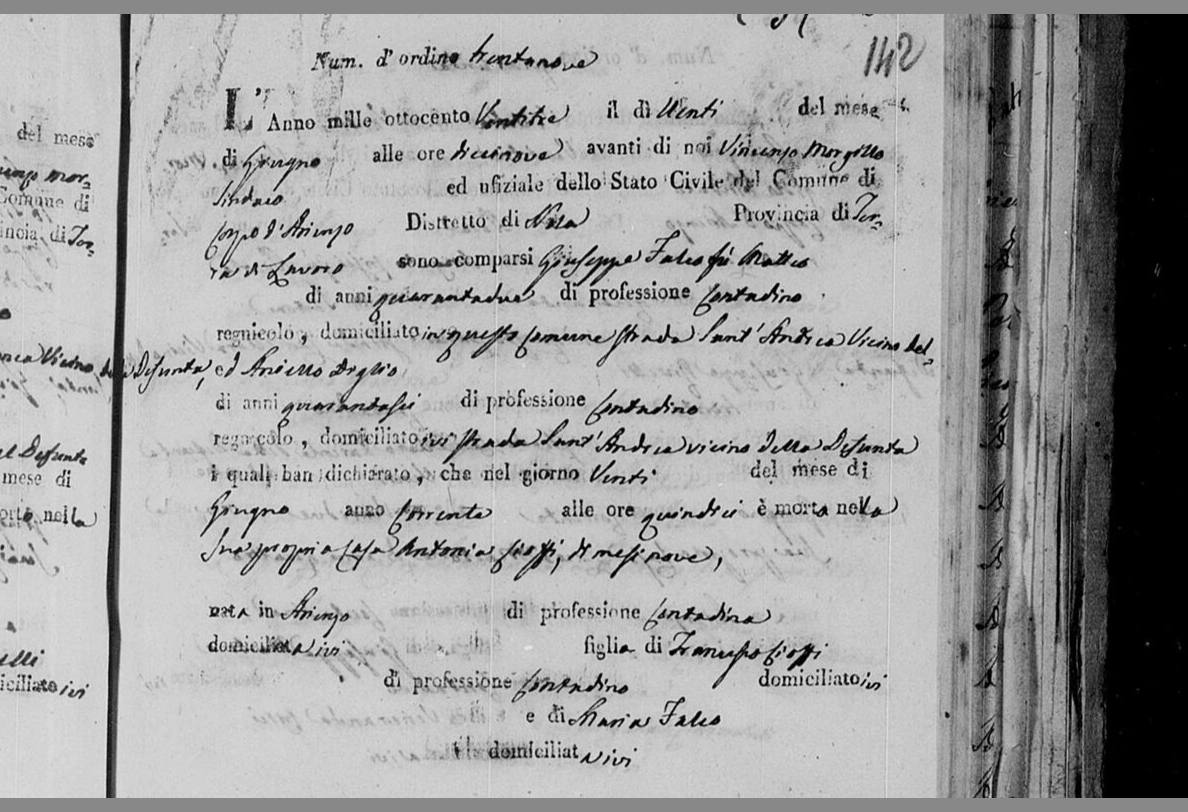 142
Num. d' ordine trentanove
L' Anno mille ottocento Ventitre il dì Venti del mese
di Giugno alle ore diecinove avanti di noi Vincenzo Morgillo
Sindaco ed ufiziale dello Stato Civile del Comune di
Corpo d'Arienzo Distretto di Nola Provincia di Ter-
ra di Lavoro sono comparsi Giuseppe Falco fù Matteo
di anni quarantadue di professione Contadino
regnicolo, domiciliato in questo Comune strada Sant' Andrea Vicino del-
la Defunta, ed Aniello
di anni quarantasei di professione Contadino
regnicolo, domiciliato ivi strada Sant' Andrea vicino della Defunta
i quali han dichiarato, che nel giorno Venti del mese di
Giugno anno Corrente alle ore quindici è morta nella
sua propria Casa Antonia Cioffi, di mesi nove,
nata in Arienzo di professione Contadina
domiciliata ivi figlia di Francesco Cioffi
di professione Contadino domiciliato ivi
e di Maria Falco
domiciliata ivi
del mese
Comune di
incia di Ter-
Vicino
el Defunto
mese di
nella
iciliato ivi